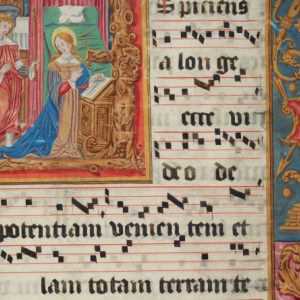 Spiciens
a lon ge
ecce vi
deo de
potentiam venien tem et
lam totam terram te